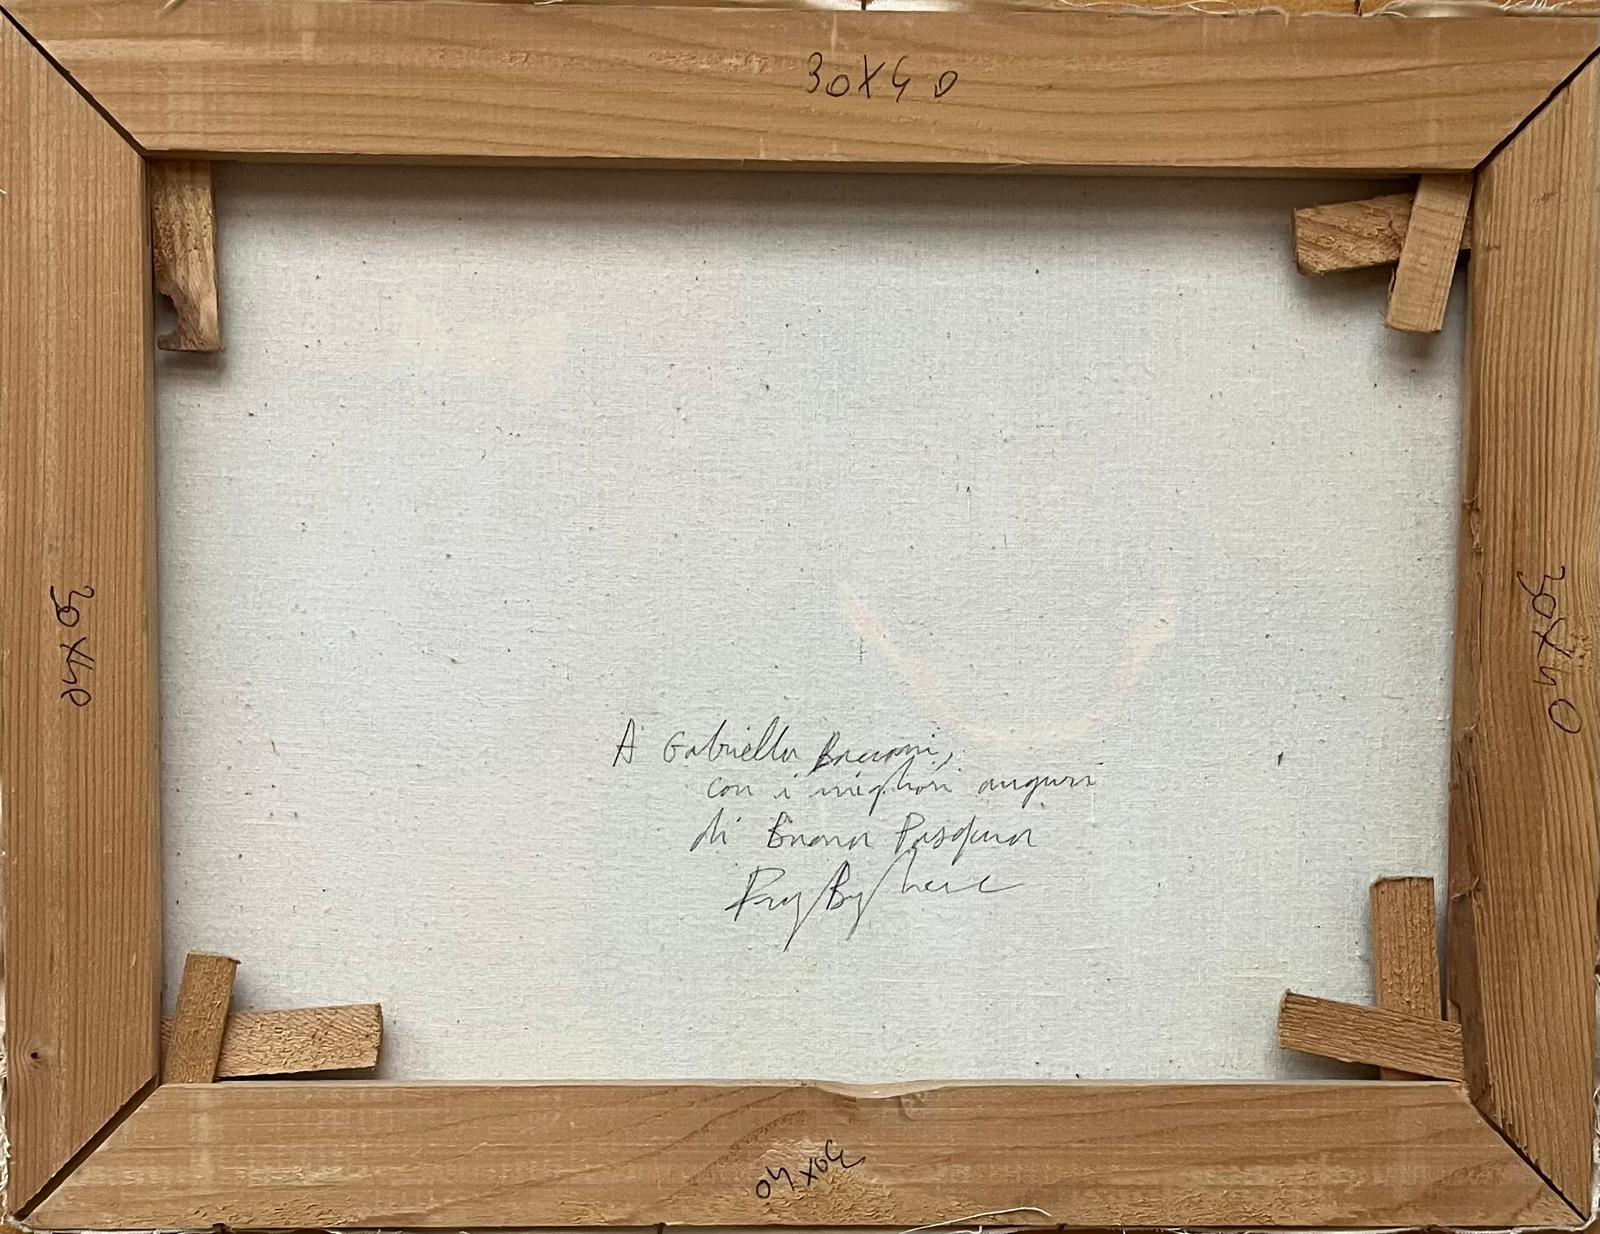 30X40
30X40
30X40
A Gabriella
con i migliori auguri
di Buona Pasqua
30X40